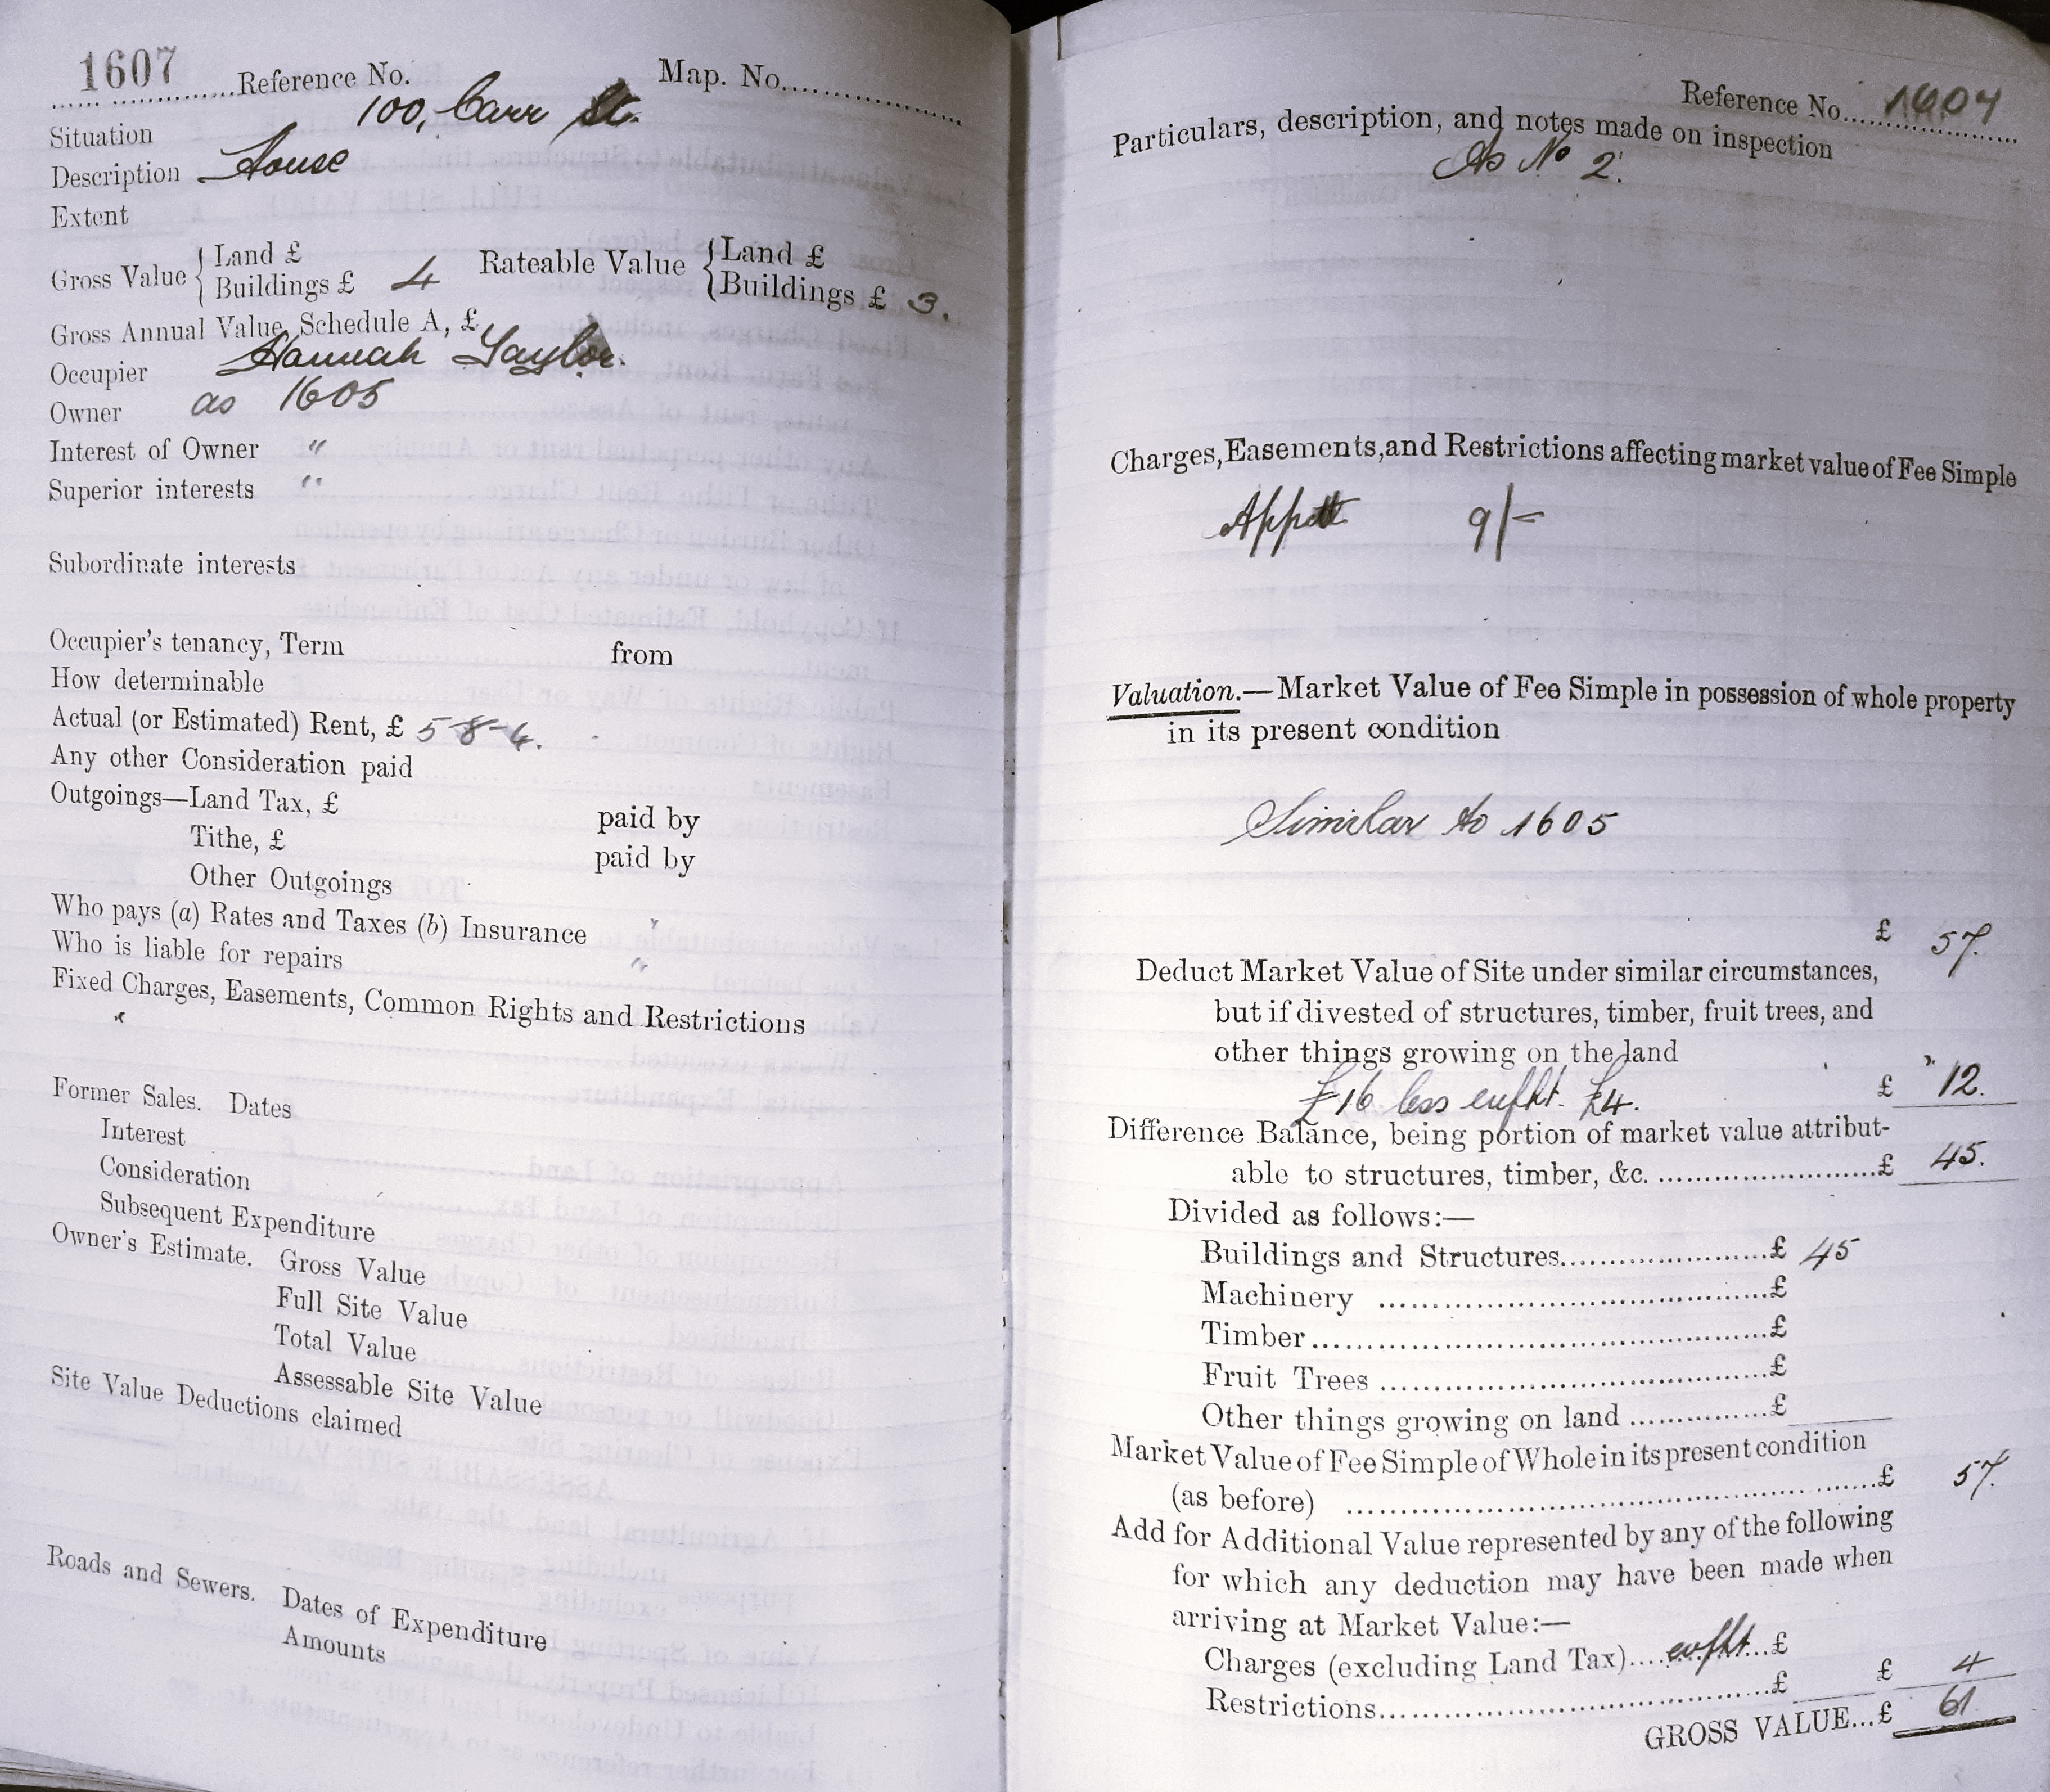 1607 Reference No. Map. No.
Situation 100, Carr St.
Description House
Extent
Gross Value { Land £
Buildings £ 4
Rateable Value { Land £
Buildings £ 3.
Gross Annual Value, Schedule A, £
Occupier Hannah Taylor.
Owner as 1605
Interest of Owner "
Superior interests "
Subordinate interests
Occupier's tenancy, Term from
How determinable
Actual (or Estimated) Rent, £ 5-8-4.
Any other Consideration paid
Outgoings—Land Tax, £ paid by
Tithe, £ paid by
Other Outgoings
Who pays (a) Rates and Taxes (b) Insurance "
Who is liable for repairs "
Fixed Charges, Easements, Common Rights and Restrictions
"
Former Sales. Dates
Interest
Consideration
Subsequent Expenditure
Owner's Estimate. Gross Value
Full Site Value
Total Value
Assessable Site Value
Site Value Deductions claimed
Roads and Sewers. Dates of Expenditure
Amounts
Reference No. 1607
Particulars, description, and notes made on inspection
As No 2.
Charges, Easements, and Restrictions affecting market value of Fee Simple
9/-
Valuation.—Market Value of Fee Simple in possession of whole property
in its present condition
Similar to 1605
£ 57.
Deduct Market Value of Site under similar circumstances,
but if divested of structures, timber, fruit trees, and
other things growing on the land
£16 less £4. £ 12.
Difference Balance, being portion of market value attribut-
able to structures, timber, &c. £ 45.
Divided as follows:—
Buildings and Structures £ 45
Machinery £
Timber £
Fruit Trees £
Other things growing on land £
Market Value of Fee Simple of Whole in its present condition
(as before) £ 57.
Add for Additional Value represented by any of the following
for which any deduction may have been made when
arriving at Market Value:—
Charges (excluding Land Tax) £
Restrictions £ £ 4
GROSS VALUE... £ 61.